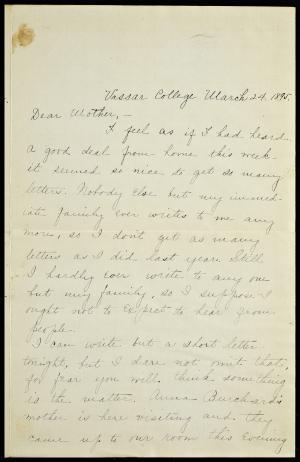 Vassar College March 24, 1895.
Dear Mother,—
I feel as if I had heard
a good deal from home this week
it seemed so nice to get so many
letters. Nobody else but my immed-
iate family ever writes to me any
more, so I don't get as many
letters as I did last year. Still
I hardly ever write to any one
but my family, so I suppose I
ought not to expect to hear from
people.
I can write but a short letter
tonight, but I dare not omit that,
for fear you will think something
is the matter. Anna Burchard's
mother is here visiting and they
came up to our room this evening